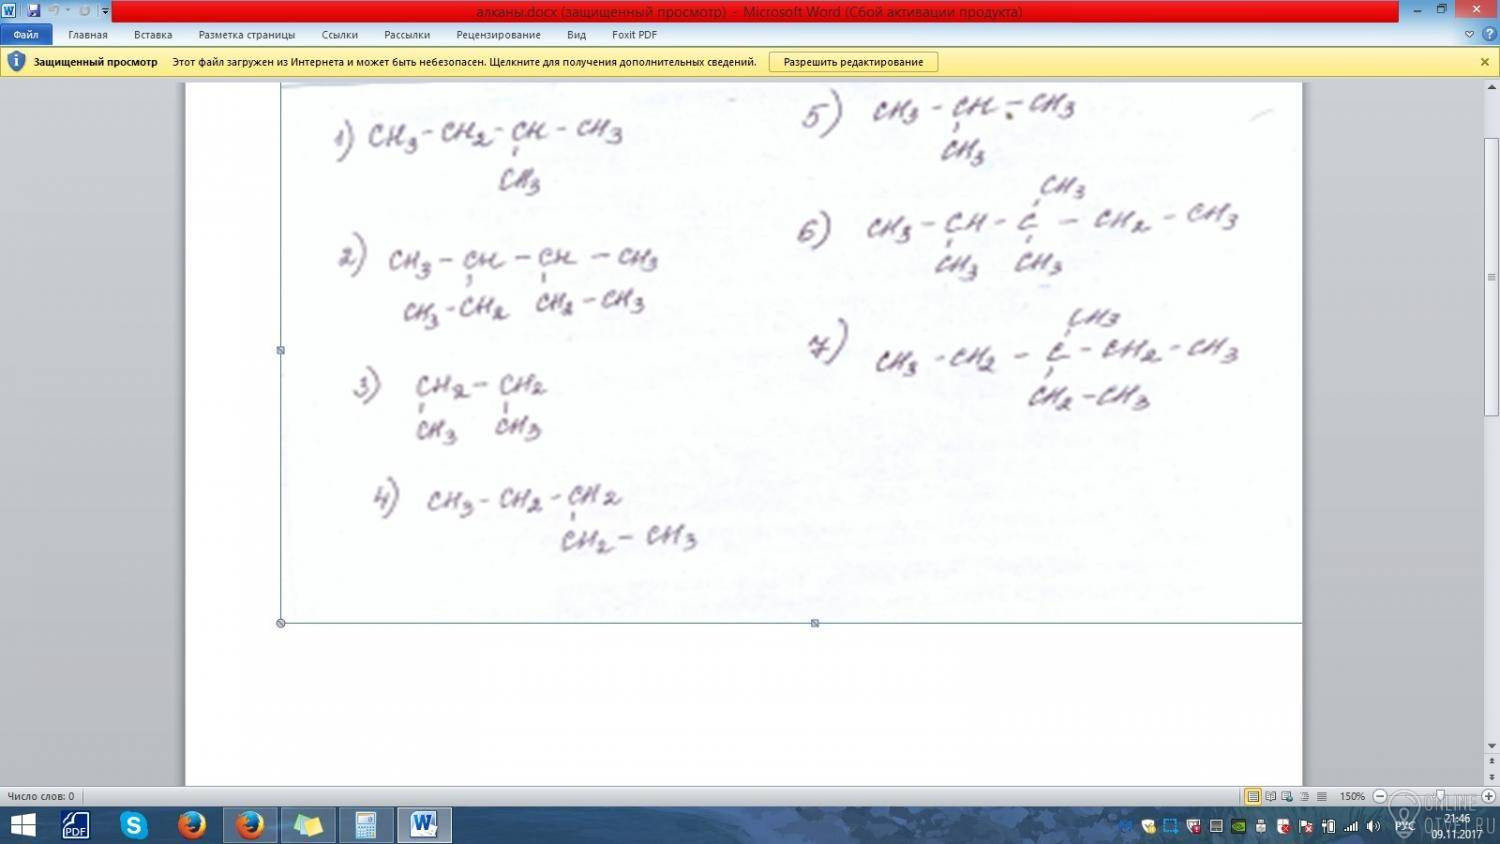 алканы.docx (защищенный просмотр) - Microsoft Word (Сбой активации продукта)
Файл Главная Вставка Разметка страницы Ссылки Рассылки Рецензирование Вид Foxit PDF
Защищенный просмотр Этот файл загружен из Интернета и может быть небезопасен. Щелкните для получения дополнительных сведений. Разрешить редактирование
1) CH3 - CH2 - CH - CH3
CH3
2) CH3 - CH - CH - CH3
CH3 - CH2 CH2 - CH3
3) CH2 - CH2
CH3 CH3
4) CH3 - CH2 - CH2
CH2 - CH3
5) CH3 - CH - CH3
CH3
CH3
6) CH3 - CH - C - CH2 - CH3
CH3 CH3
CH3
7) CH3 - CH2 - C - CH2 - CH3
CH2 - CH3
Число слов: 0
150%
PDF
РУС
21:46
09.11.2017
ONLINE
OTVET.RU